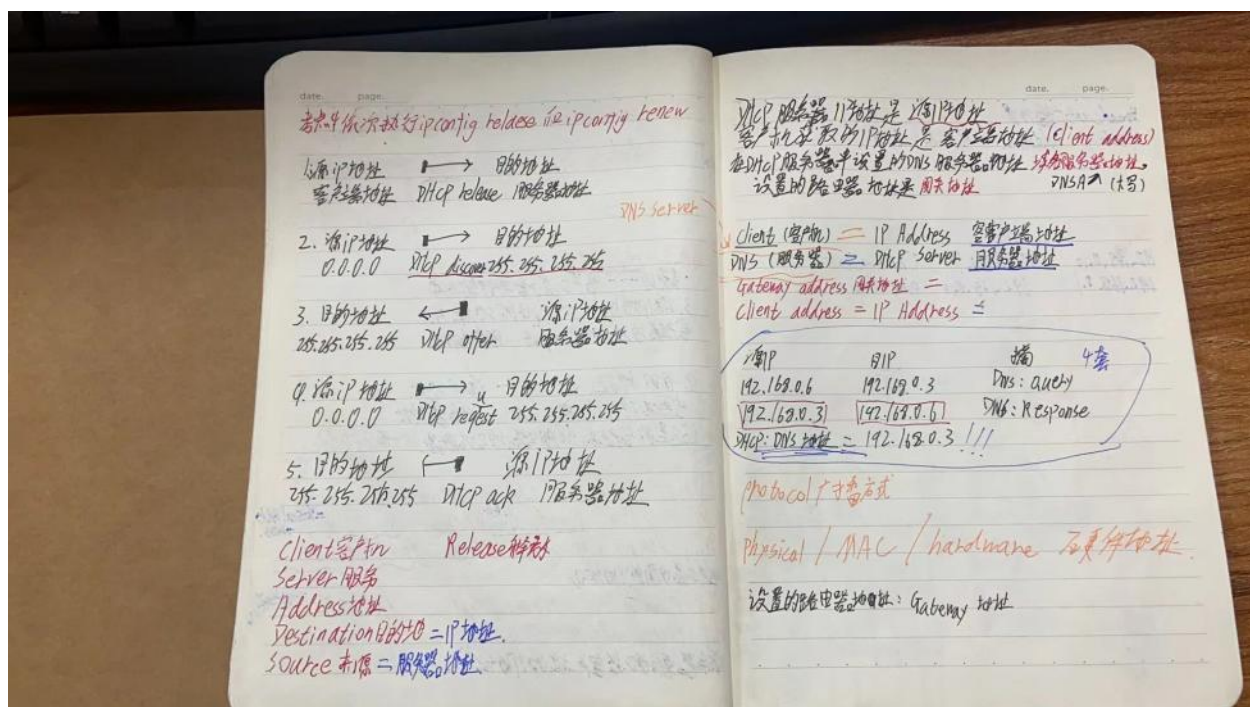 date. page.
考点4依次执行ipconfig reldese 和ipconfig renew
1.源ip地址 → 目的地址
客户端地址 DHCP release 服务器地址
2. 源ip地址 → 目的地址
0.0.0.0 DHCP discover 255.255.255.255
3. 目的地址 ← 源ip地址
255.255.255.255 DHCP offer 服务器地址
4. 源ip地址 → 目的地址
0.0.0.0 DHCP reqest 255.255.255.255
u
5. 目的地址 ← 源IP地址
255.255.255.255 DHCP ack 服务器地址
Client客户机 Release
Server服务
Address地址
Destination目的地=IP地址.
Source来源=服务器地址
date. page.
DHCP服务器IP地址是源IP地址
客户机获取的IP地址是客户端地址 (Client address)
在DHCP服务器中设置的DNS服务器地址 服务器地址。
设置的路由器地址是网关地址 DNSA (大写)
DNS server
Client (客户机) = IP Address 客户端地址
DNS (服务器) = DHCP server 服务器地址
Gateway address 网关地址 =
Client address = IP Address =
源IP 目IP 摘 4套
192.168.0.6 192.168.0.3 DNS: Query
192.168.0.3 192.168.0.6 DNS: Response
DHCP: DNS地址 = 192.168.0.3 !!!
protocol 广播方式
physical / MAC / hardware 硬件地址.
设置的路由器地址: Gateway 地址